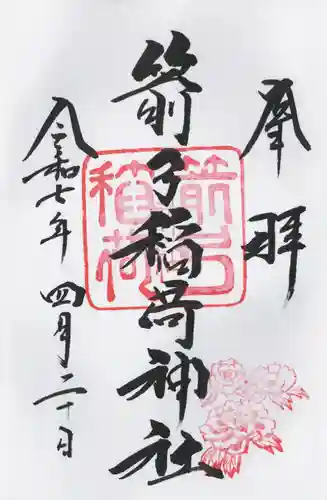 奉拝
箭弓稲荷神社
箭弓
稲荷
令和七年 四月二十日